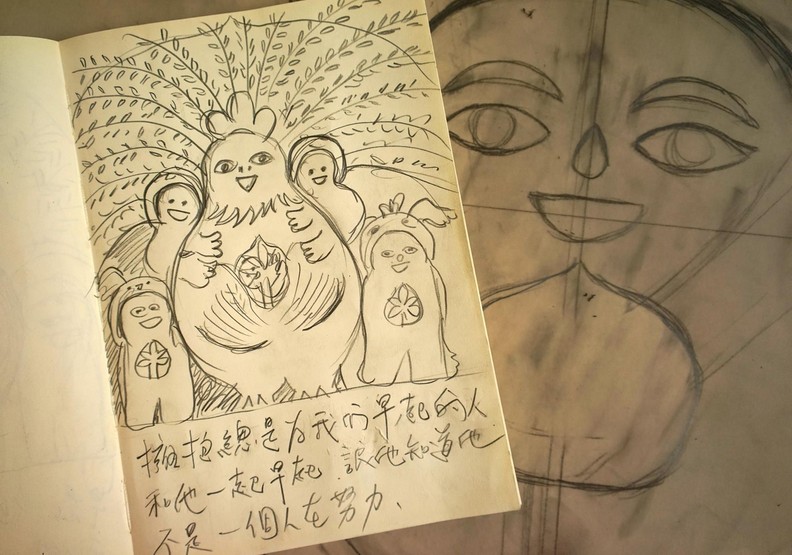 擁抱總是为我们早起的人
和他一起早起 讓他知道他
不是一個人在努力、